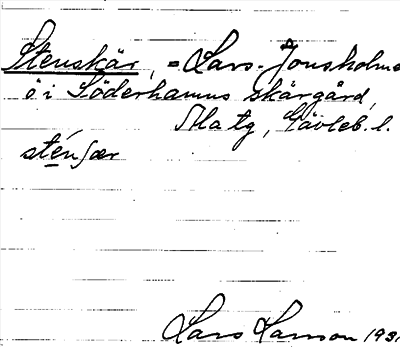 Stenskär, = Lars-Jonsholme
ö i Söderhamns skärgård,
Matg, Gävleb. l.
sténʃær
Lars Larson 193